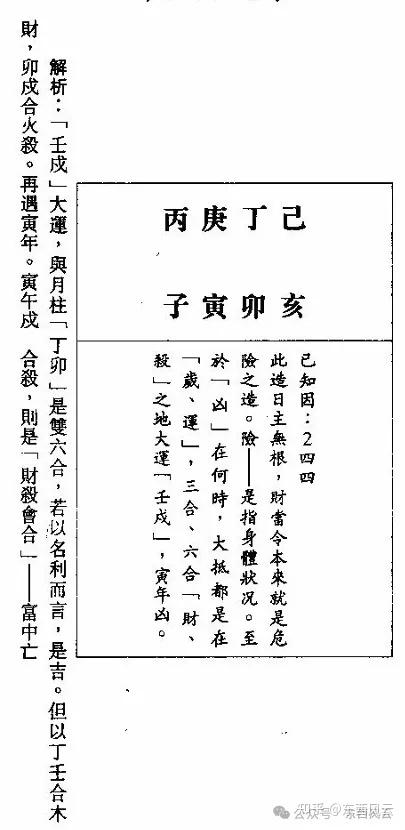 己亥
丁卯
庚寅
丙子
已知因：2四四
此造日主無根，財當令本來就是危
險之造。險——是指身體狀況。至
於「凶」在何時，大抵都是在
「歲、運」，三合、六合「財、
殺」之地大運「壬戌」，寅年凶。
解析：「壬戌」大運，與月柱「丁卯」是雙六合，若以名利而言，是吉。但以丁壬合木
財，卯戌合火殺。再遇寅年。寅午戌　合殺，則是「財殺會合」——富中亡
知乎 @东西风云
公众号·东西风云